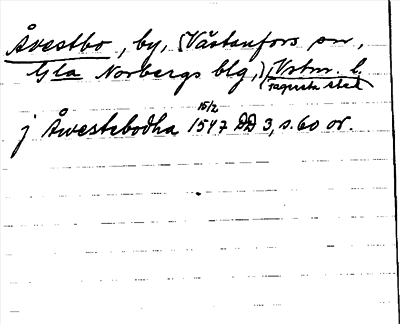 Åvestbo, by, (Västanfors sn,
Gla Norbergs blg,) Vstm. l.
Fagersta stad
j Åwestebodha 15/2 1547 DD 3, s. 60 or.